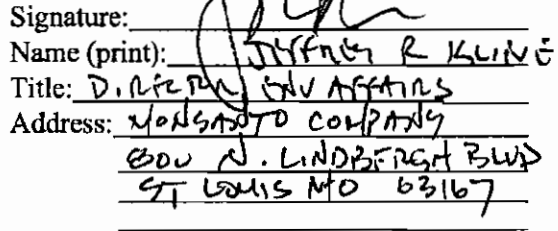 Signature:
Name (print): JEFFREY R KLINE
Title: DIRECTOR, ENV AFFAIRS
Address: MONSANTO COMPANY
800 N. LINDBERGH BLVD
ST LOUIS MO 63167